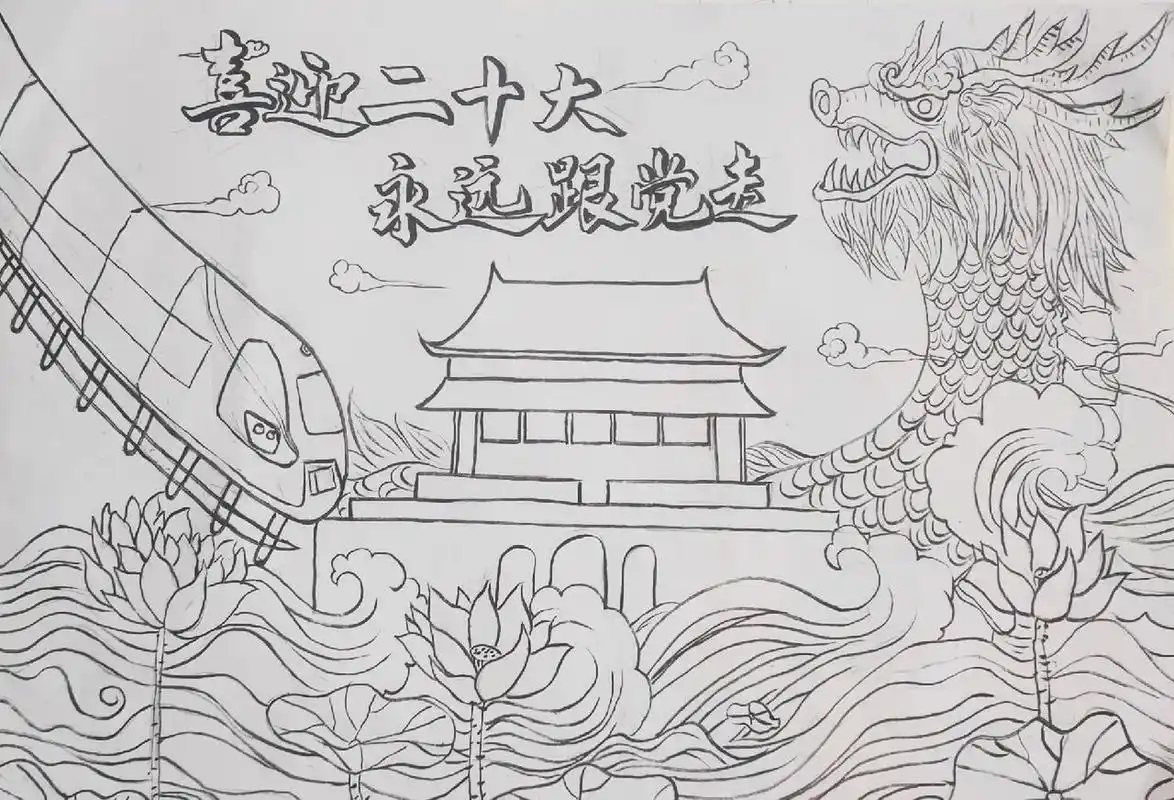 喜迎二十大
永远跟党走